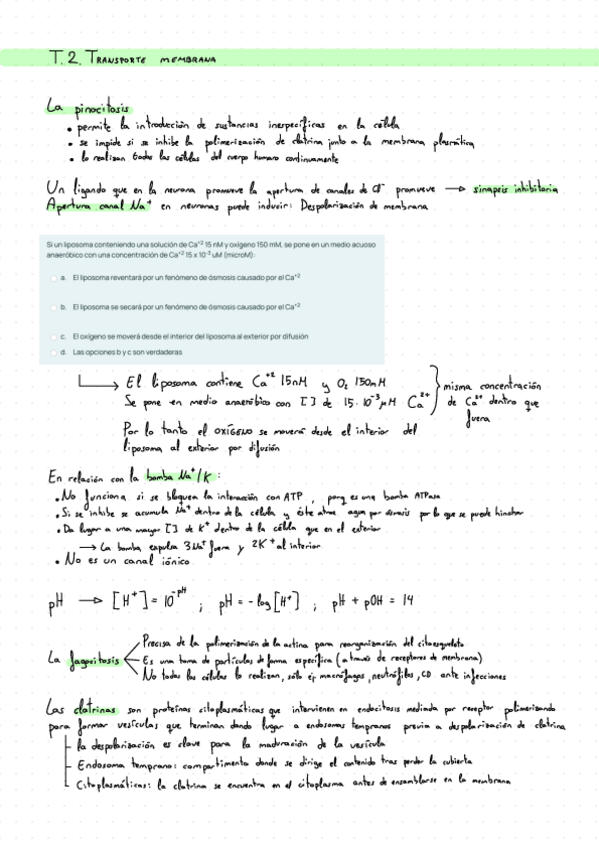 T.2. TRANSPORTE MEMBRANA
La pinocitosis
• permite la introducción de sustancias inespecíficas en la célula
• se impide si se inhibe la polimerización de clatrina junto a la membrana plasmática
• lo realizan todas las células del cuerpo humano continuamente
Un ligando que en la neurona promueve la apertura de canales de Cl⁻ promueve → sinapsis inhibitoria
Apertura canal Na⁺ en neuronas puede inducir: Despolarización de membrana
Si un liposoma conteniendo una solución de Ca⁺² 15 nM y oxígeno 150 mM, se pone en un medio acuoso
anaeróbico con una concentración de Ca⁺² 15 x 10⁻³ uM (microM):
a. El liposoma reventará por un fenómeno de ósmosis causado por el Ca⁺²
b. El liposoma se secará por un fenómeno de ósmosis causado por el Ca⁺²
c. El oxígeno se moverá desde el interior del liposoma al exterior por difusión
d. Las opciones b y c son verdaderas
→ El liposoma contiene Ca⁺² 15nM y O₂ 150mM
Se pone en medio anaeróbico con [ ] de 15·10⁻³ μM Ca²⁺
misma concentración
de Ca²⁺ dentro que
fuera
Por lo tanto el OXÍGENO se moverá desde el interior del
liposoma al exterior por difusión
En relación con la bomba Na⁺/K:
• No funciona si se bloquea la interacción con ATP, porq es una bomba ATPasa
• Si se inhibe se acumula Na⁺ dentro de la célula y éste atrae agua por ósmosis por lo que se puede hinchar
• Da lugar a una mayor [ ] de K⁺ dentro de la célula que en el exterior
→ La bomba expulsa 3Na⁺ fuera y 2K⁺ al interior
• No es un canal iónico
pH → [H⁺] = 10⁻ᵖᴴ ; pH = -log[H⁺] ; pH + pOH = 14
La fagocitosis
Precisa de la polimerización de la actina para reorganización del citoesqueleto
Es una toma de partículas de forma específica (a través de receptores de membrana)
No todas las células lo realizan, sólo ej: macrófagos, neutrófilos, CD ante infecciones
Las clatrinas son proteínas citoplasmáticas que intervienen en endocitosis mediada por receptor polimerizando
para formar vesículas que terminan dando lugar a endosomas tempranos previa a despolarización de clatrina
la despolarización es clave para la maduración de la vesícula
Endosoma temprano: compartimento donde se dirige el contenido tras perder la cubierta
Citoplasmáticas: la clatrina se encuentra en el citoplasma antes de ensamblarse en la membrana